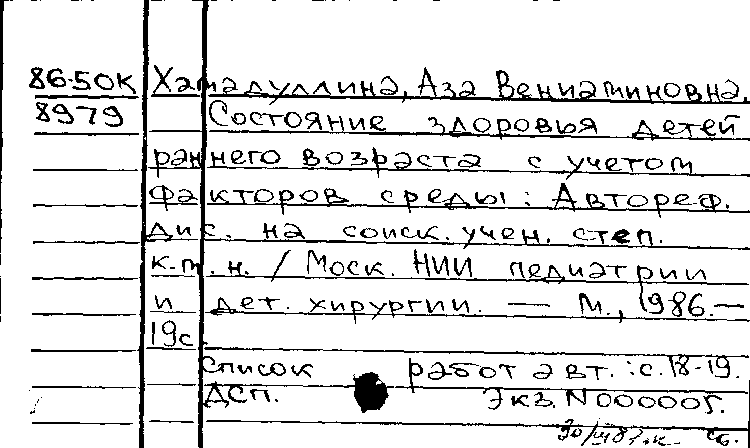 86-50К Хамадуллина, Аза Вениаминовна.
8979 Состояние здоровья детей
раннего возраста с учетом
факторов среды: Автореф.
дис. на соиск. учен. степ.
к.м.н. / Моск. НИИ педиатрии
и дет. хирургии. — М., 1986.—
19с.
Список работ авт.: с.18-19.
ДСП. Экз. N000005.